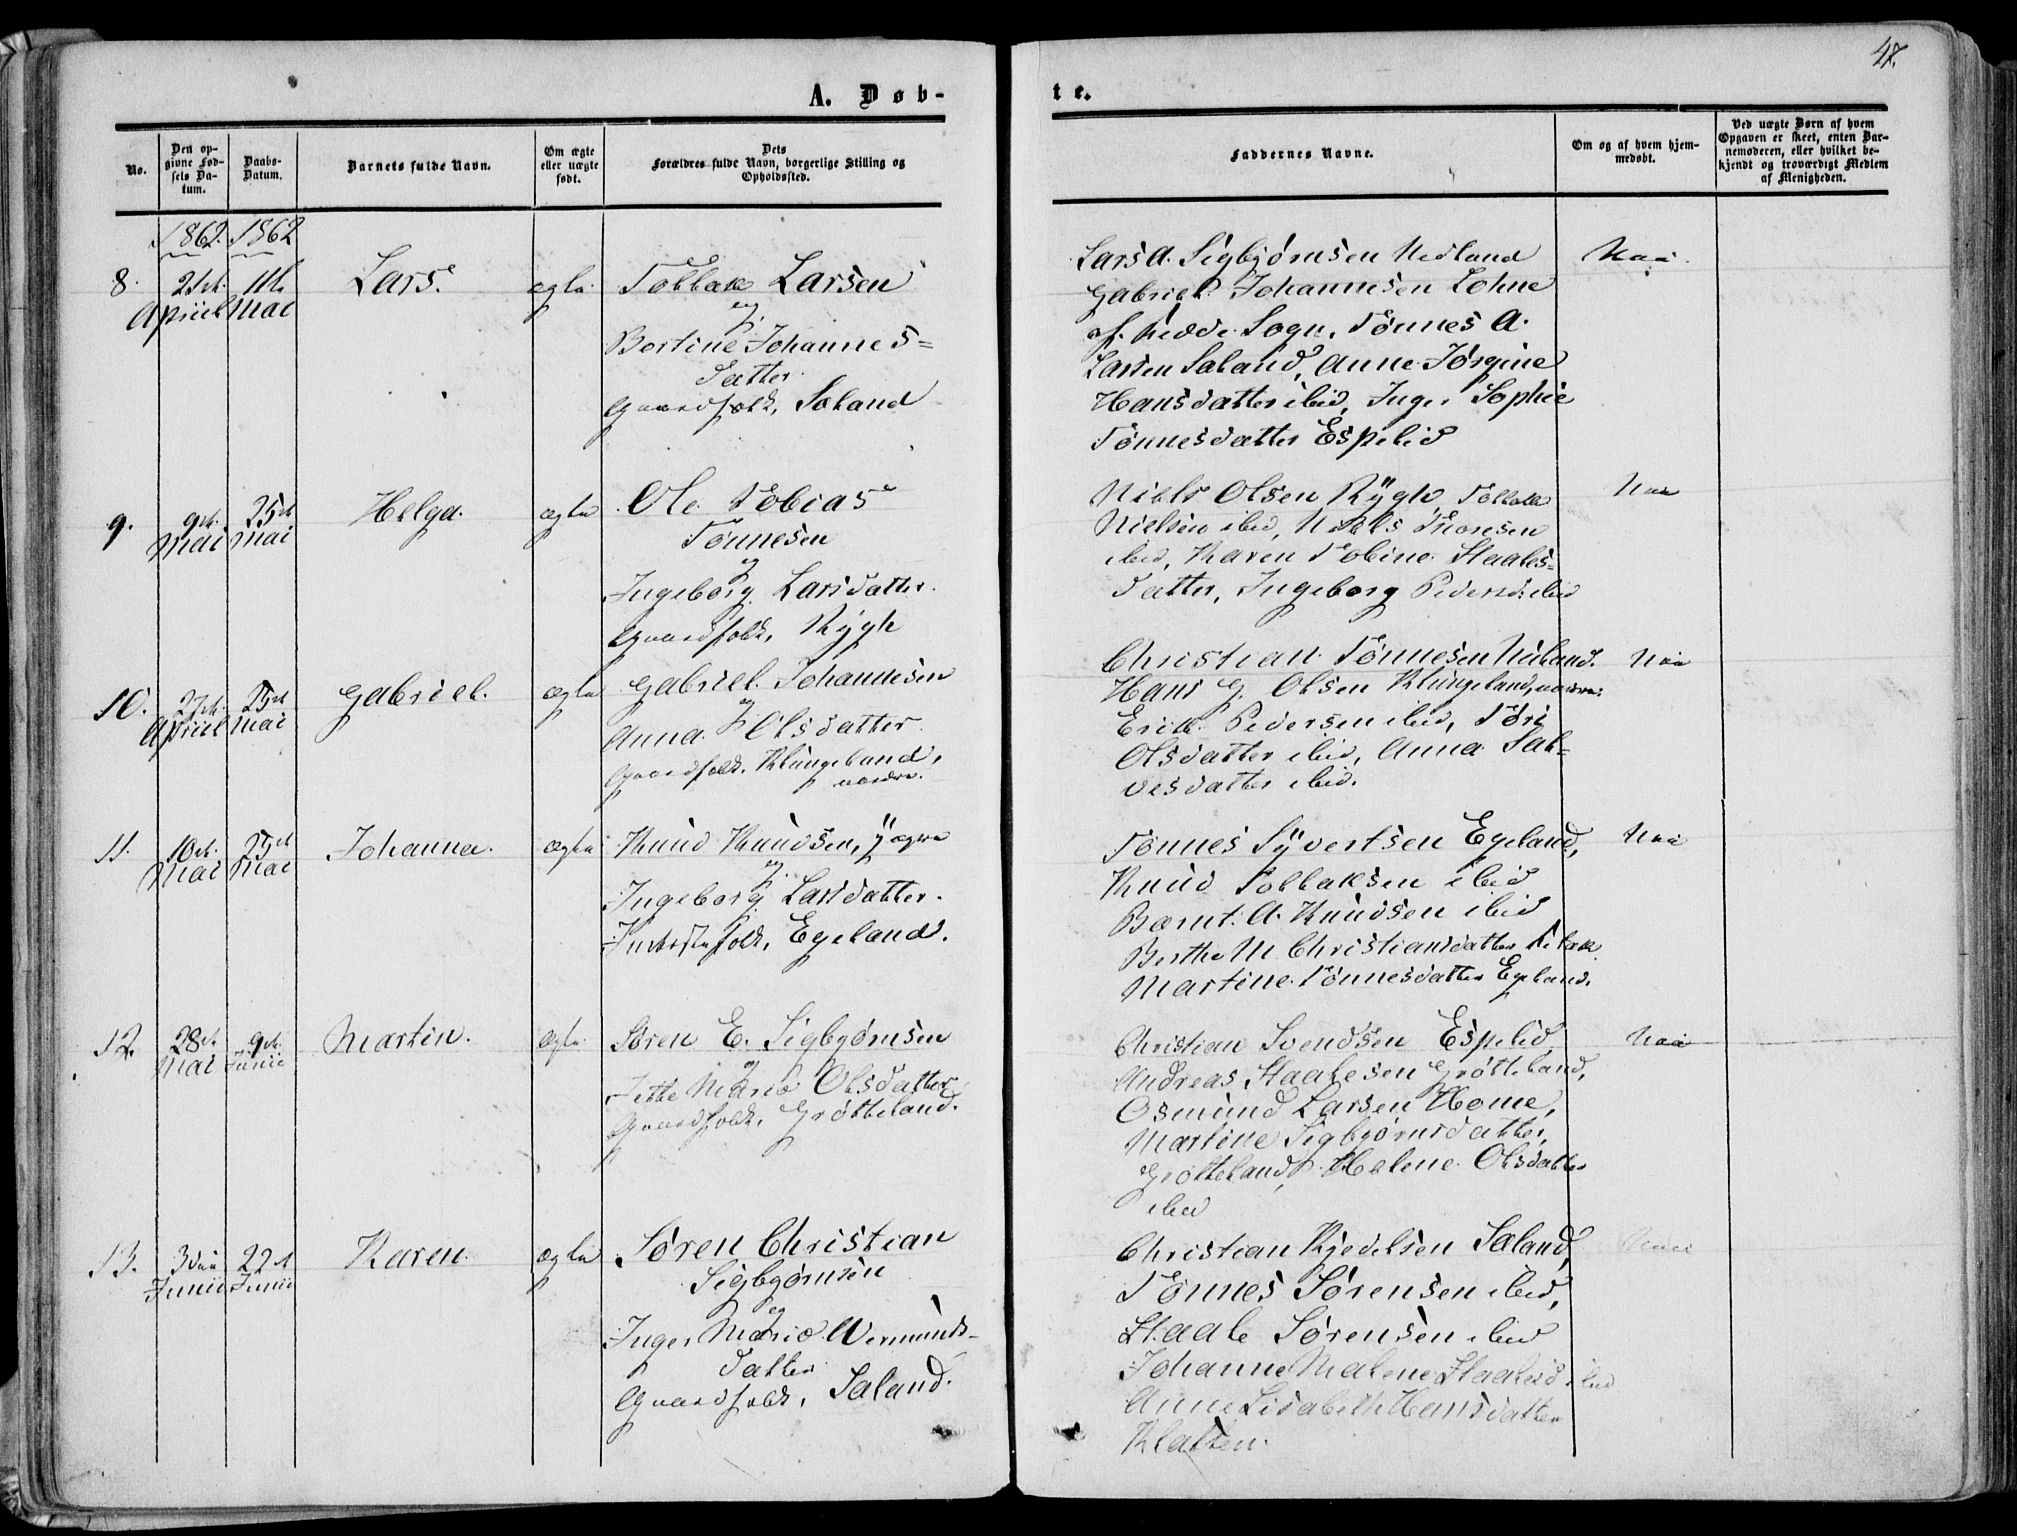 A. Døb-
te.
48.
No.
Den opgivne Fødsels Datum.
Daabs-Datum.
Barnets fulde Navn.
Om ægte eller uægte født.
Dets Forældres fulde Navn, borgerlige Stilling og Opholdssted.
Faddernes Navne.
Om og af hvem hjemmedøbt.
Ved uægte Børn af hvem Opgaven er skeet, enten Barnemoderen, eller hvilket bekjendt og troværdigt Medlem af Menigheden.
1862. 1862
8.
21de Apriil
11te Mai
Lars.
ægte.
Tollak Larsen
og
Bertine Johannes=
datter.
Gaardfolk, Saland
Lars A. Sigbjørnsen Nedland
Gabriel Johannesen Lohne
af Hedde Sogn, Tönnes A.
Larsen Saland, Anne Jørgine
Hansdatter ibid, Inger Sophie
Tönnesdatter Espelid
Nei.
9.
9de Mai
25de Mai
Helga.
ægte
Ole Tobias
Tönnesen
og
Ingeborg Larsdatter.
Gaardfolk, Rygh
Niels Olsen Rygh, Tollak
Nielsen ibid, Niels Thorsen
ibid, Karen Tobine Staales=
datter, Ingeborg Pedersd: ibid
Nei
10.
27de Apriil
25de Mai
Gabriel.
ægte
Gabriel Johannesen
og
Anna Olsdatter
Gaardfolk. Klungeland,
nordre.
Christian Tönnesen
Hans G. Olsen Klungeland, nordre.
Erik Pedersen ibid, Töri
Olsdatter ibid, Anna Sal=
vesdatter ibid.
Nei
11.
10de Mai
25de Mai
Johanna.
ægte
Knud Knudsen, yngre
og
Ingeborg Larsdatter.
Inderstefolk, Egeland.
Tönnes Syvertsen Egeland,
Knud Tollaksen ibid
Bernt A. Knudsen ibid
Berthe M Christiansdatter
Martine Tönnesdatter Egeland.
Nei
12.
28de Mai
9de Junii
Martin.
ægte
Søren E. Sigbjørnsen
og
Jette Marie Olsdatter
Gaardfolk, Grötteland.
Christian Svendsen Espelid
Andreas Staalesen Grötteland,
Osmund Larsen Home,
Martine Sigbjørnsdatter,
Grötteland, Helene Olsdatter
ibid
Nei
13.
3die Junii
22de Junii
Karen.
ægte
Søren Christian
Sigbjørnsen
og
Inger Marie Vermunds-
datter
Gaardfolk, Saland.
Christian Kjedelsen Saland,
Tönnes Sørensen ibid,
Staale Sørensen ibid
Johanne Malene Staalesd ibid
Anne Lisabeth Hansdatter
Klatten.
Nei